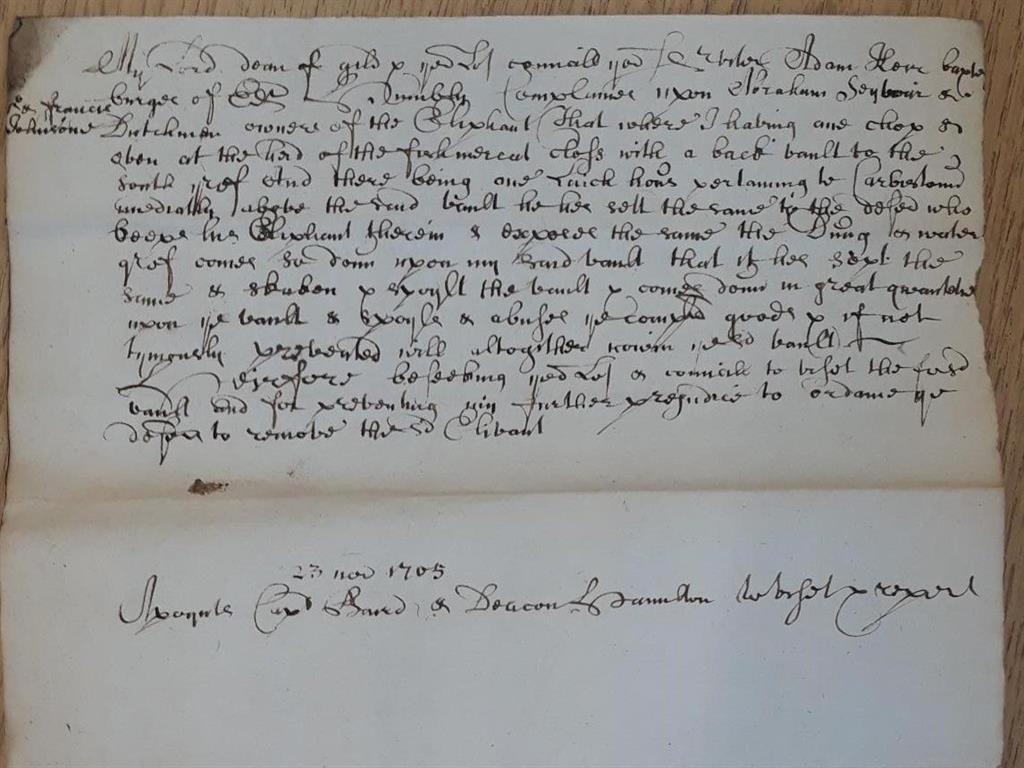 My Lord dean of gild & yor Lo/ councill yor Servitor Adam Kerr baxter
burges of Edr Humbly Complaines upon Abraham Sever &
& francis Johnsone
Dutchman owners of the Eliphant That where I having ane chop &
oven at the head of the fishmercat closs with a back vault to the
south yrof And there being one Laich hous pertaining to
imediatly above the said vault he hes sett the same to the defed who
keeps his Eliphant therein & exposes the same the Dung & water
qrof comes so doun upon my said vault that it hes the
same & & spoylt the vault & comes doun in great quantitie
upon ye vault & spoyls & abuses ye goods & if not
tymously prevented will altogither rowin ye sd vault
Heirfore beseeking yor Lo/ & councill to visit the forsd
vault and for preventing my further prejudice to ordaine ye
defers to remove the sd Elivant
23 nov 1705
Apoynts Capt Baird & Deacon Hamilton to visit & report